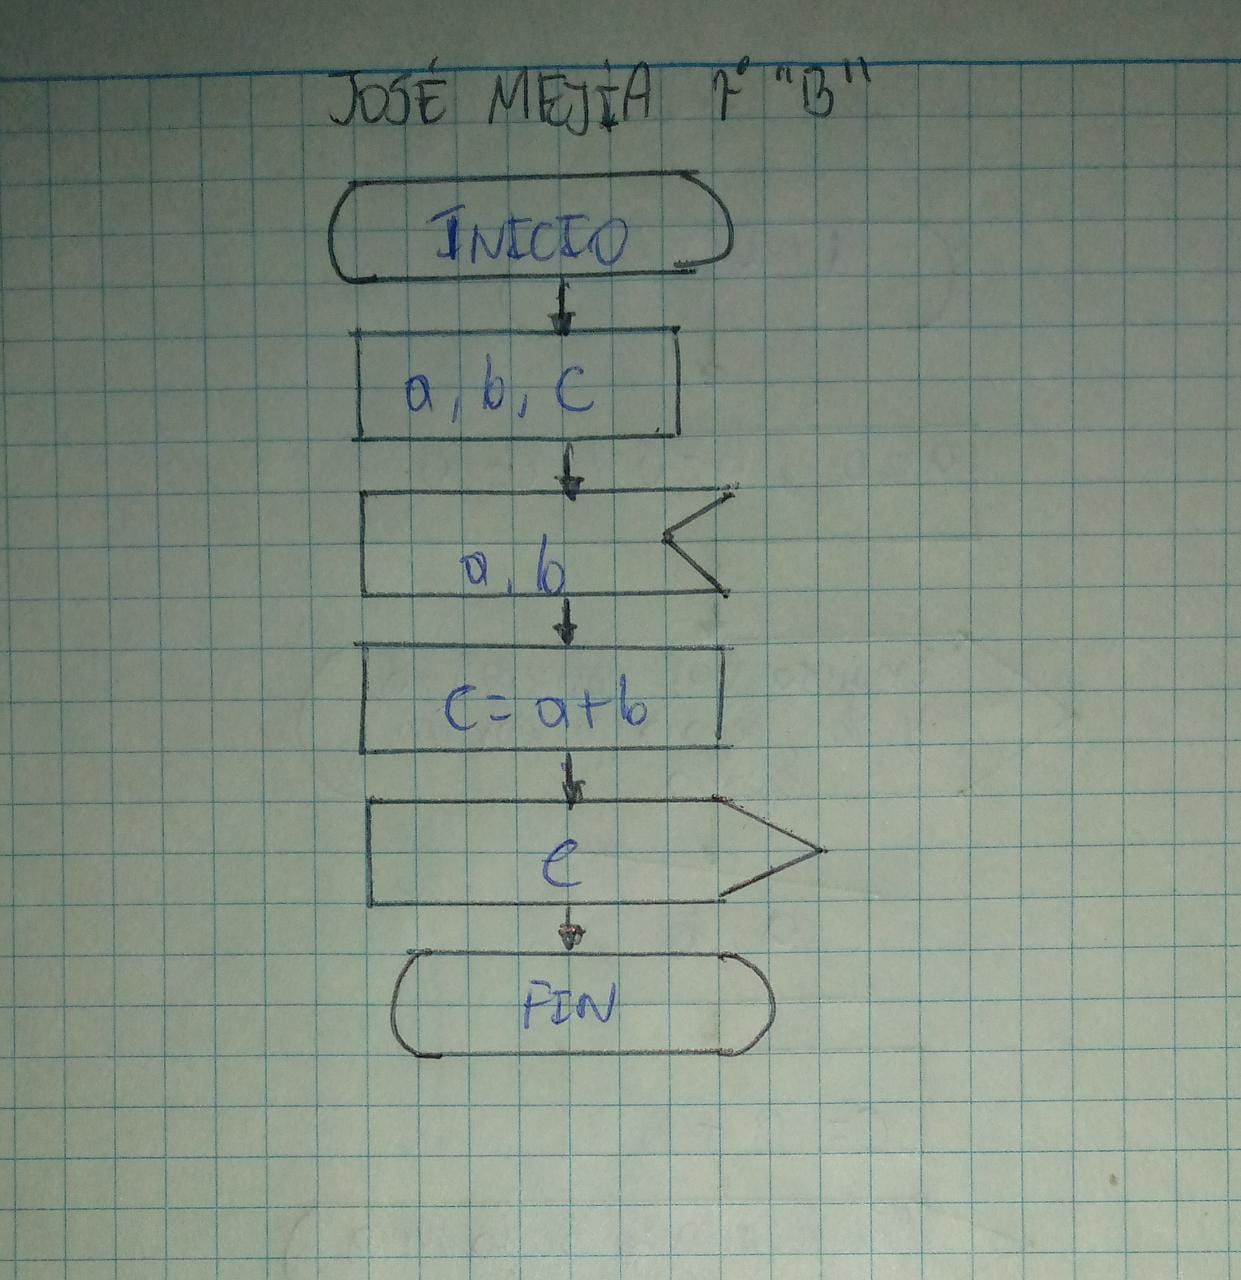 JOSÉ MEJÍA 7° "B"
INICIO
a, b, c
a, b
c = a+b
c
FIN